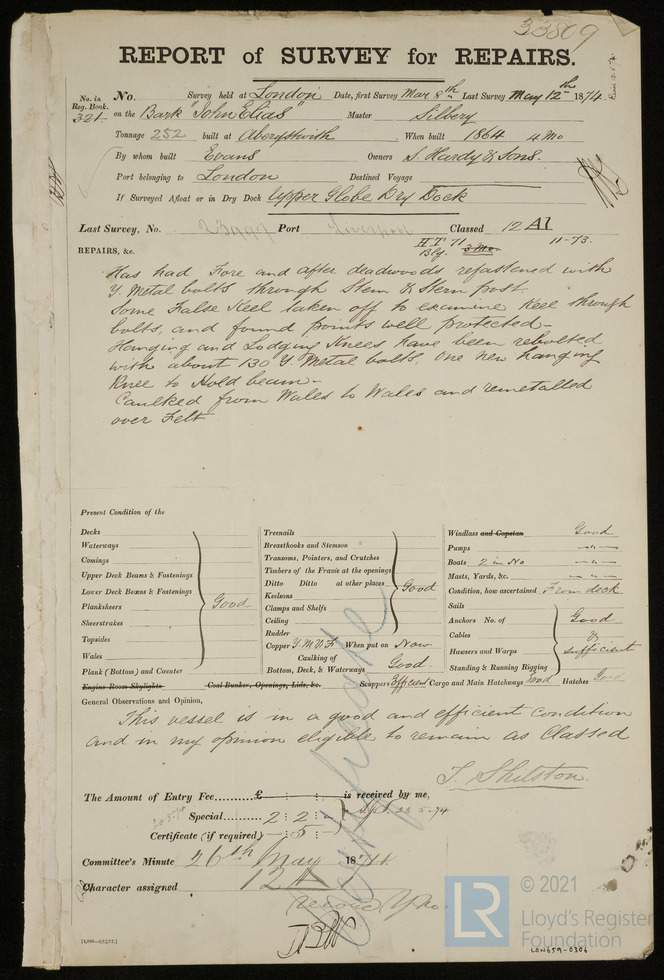 33809
REPORT of SURVEY for REPAIRS.
No. in Reg. Book. No. Survey held at London Date, first Survey Mar 8th Last Survey May 12th 1874
321 on the Bark "John Elias" Master Silbery
Tonnage 252 built at Aberystwith When built 1864 4 Mo
By whom built Evans Owners S. Hardy & Sons.
Port belonging to London Destined Voyage
If Surveyed Afloat or in Dry Dock Upper Globe Dry Dock
Last Survey, No. 23999 Port Liverpool Classed 12 A1
HT 71 11-73.
REPAIRS, &c. 3 Mo.
Has had Fore and after deadwoods refastened with
Y. Metal bolts through Stem & Stern post
Some False Keel taken off to examine Keel through
bolts, and found points well protected-
Hanging and Lodging Knees have been rebolted
with about 130 Y. Metal bolts, One new hanging
Knee to Hold beam-
Caulked from Wales to Wales and remetalled
over Felt
Present Condition of the
Decks
Waterways
Comings
Upper Deck Beams & Fastenings
Lower Deck Beams & Fastenings
Planksheers Good
Sheerstrakes
Topsides
Wales
Plank (Bottom) and Counter
Treenails
Breasthooks and Stemson
Transoms, Pointers, and Crutches
Timbers of the Frame at the openings
Ditto Ditto at other places Good
Keelsons
Clamps and Shelfs
Ceiling
Rudder
Copper Y.M & F When put on Now
Caulking of
Bottom, Deck, & Waterways Good
Windlass and Capstan Good
Pumps -"-
Boats 2 in No -"-
Masts, Yards, &c. -"-
Condition, how ascertained From deck
Sails
Anchors No. of Good
Cables &
Hawsers and Warps sufficient
Standing & Running Rigging
Engine Room Skylights Coal Bunker, Openings, Lids, &c. Scuppers Efficient Cargo and Main Hatchways Good Hatches Good
General Observations and Opinion,
This vessel is in a good and efficient condition
and in my opinion eligible to remain as Classed
T. Shilston.
The Amount of Entry Fee.......... £ : : is received by me,
Special.......... 2 : 2 : -
Certificate (if required) - : 5 :
Committee's Minute 26th May 1874
Character assigned 12 A
© 2021
LR Lloyd's Register
Foundation
LON659-0306